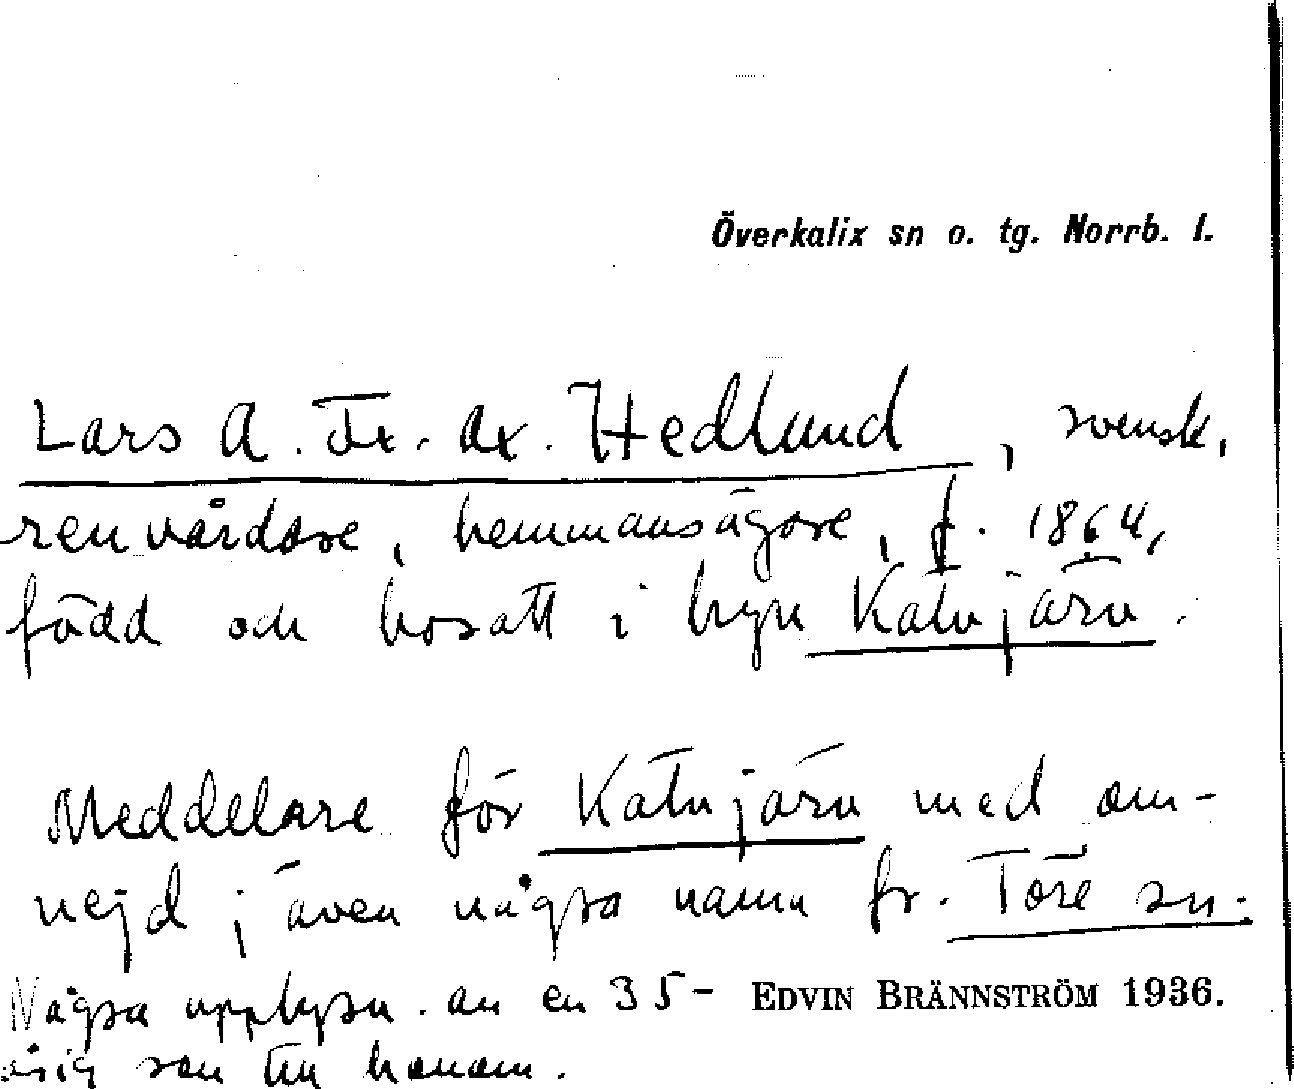 Överkalix sn o. tg. Norrb. l.
Lars A. Fr. Ax. Hedlund, svensk,
renvårdare, hemmansägare, f. 1864,
född och bosatt i byn Kätvjärv.
Meddelare för Kätvjärv med om-
nejd; även några namn fr. Töre sn.
Några upplysn. av en 35-
årig son till honom.
EDVIN BRÄNNSTRÖM 1936.